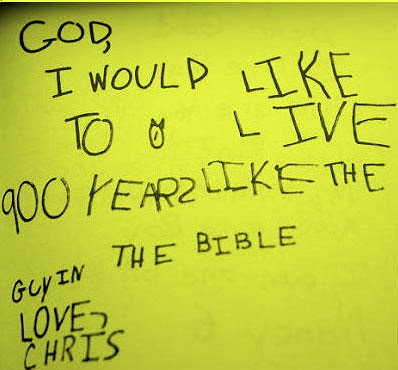 GOD,
I WOULD LIKE
TO LIVE
900 YEARS LIKE THE
GUY IN THE BIBLE
LOVE,
CHRIS